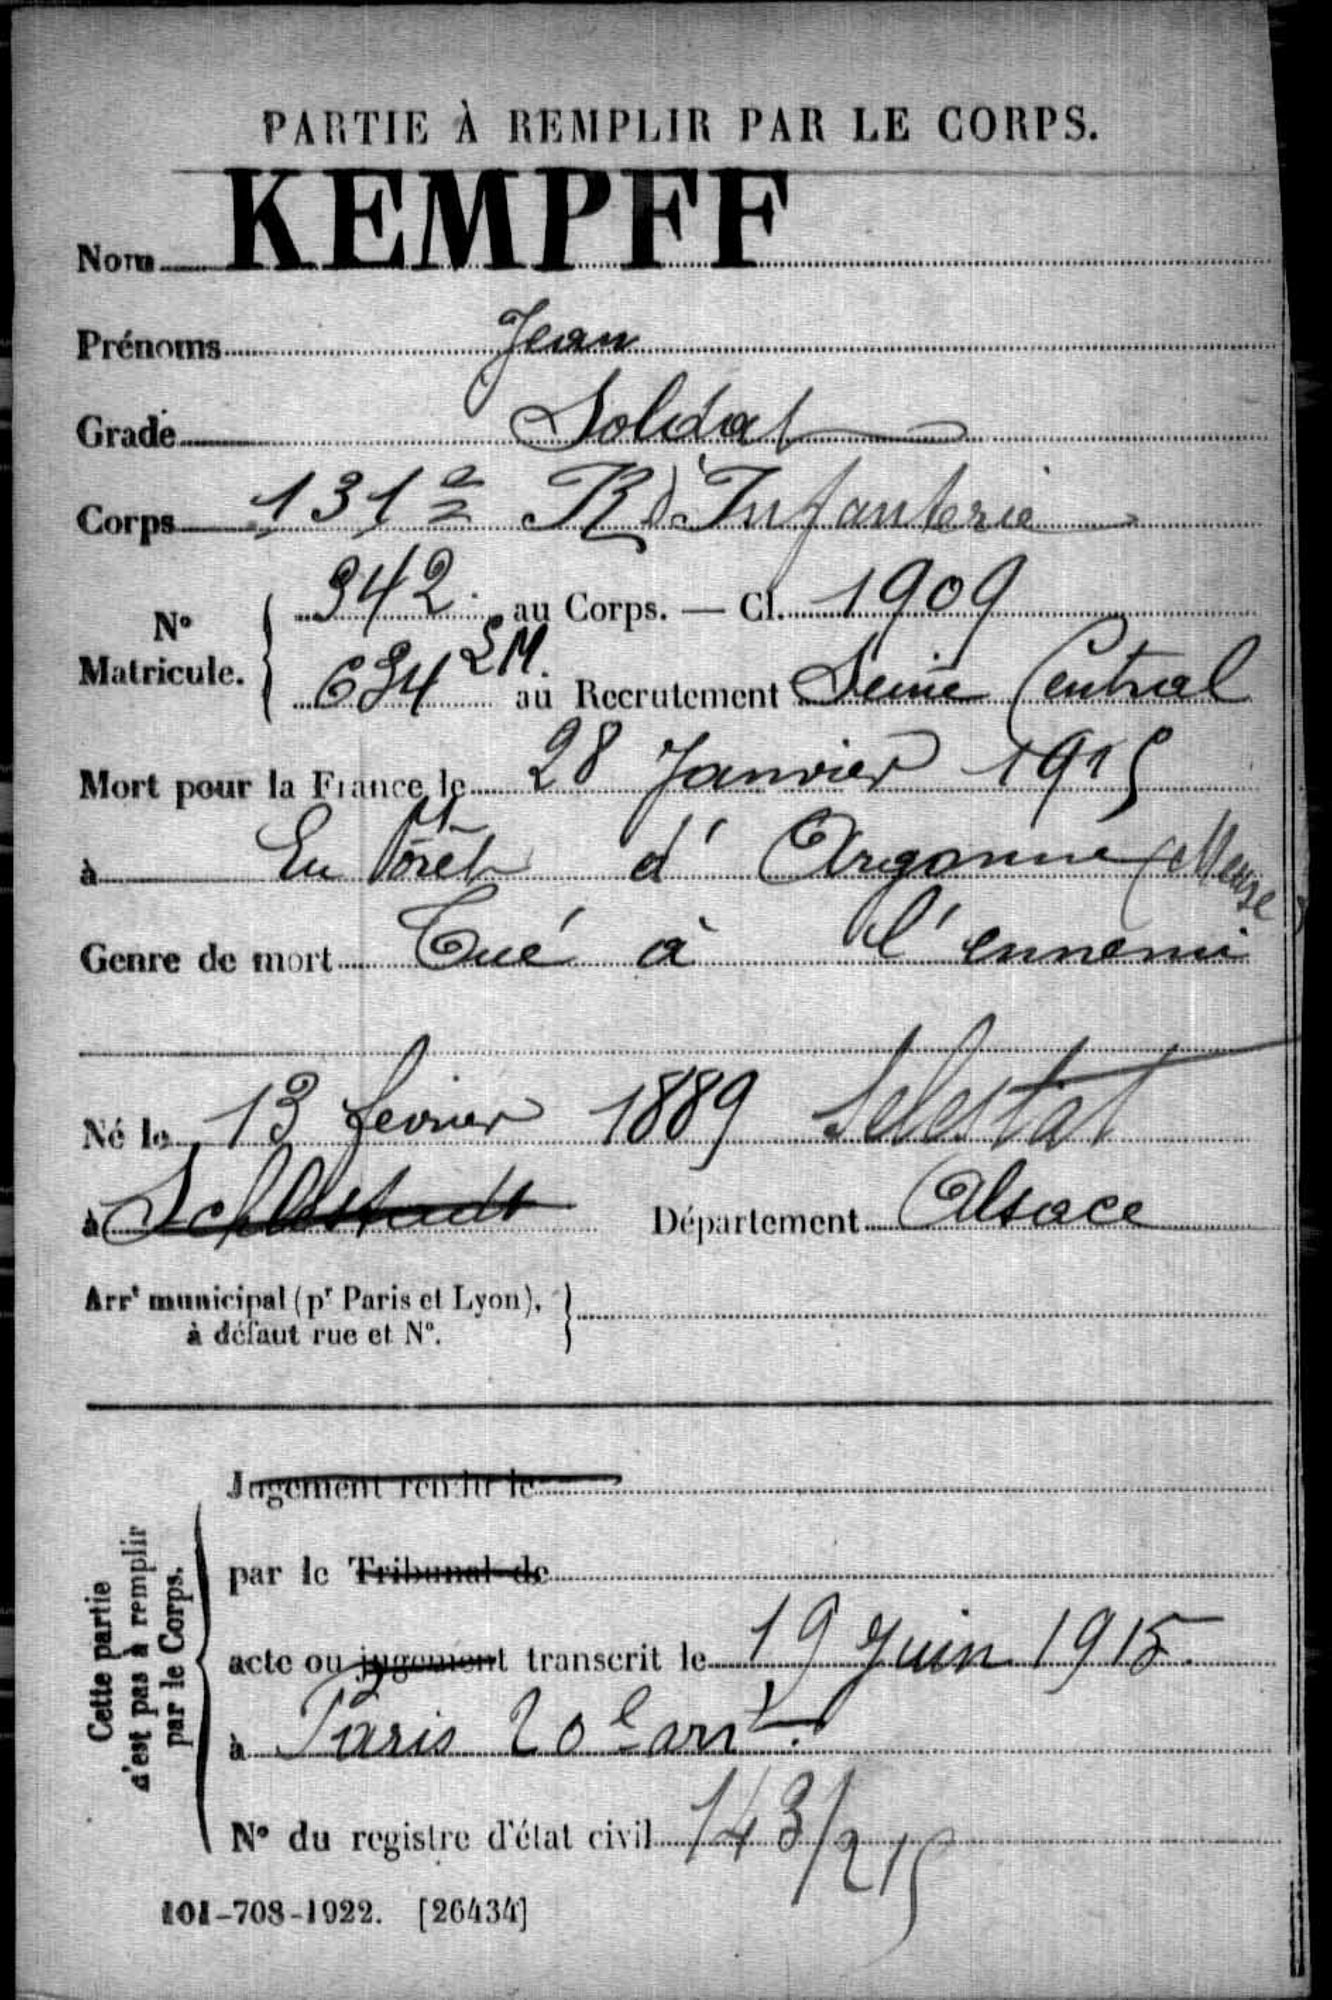 PARTIE À REMPLIR PAR LE CORPS.
Nom KEMPFF
Prénoms Jean
Grade Soldat
Corps 131e R d'Infanterie
N° Matricule. { 342. au Corps. — Cl. 1909
634 LM. au Recrutement Seine Central
Mort pour la France le 28 Janvier 1915
à En forêt d'Argonne (Meuse
Genre de mort Tué à l'ennemi
Né le 13 février 1889 Selestat
à Schlestadt Département Alsace
Arrt municipal (pr Paris et Lyon), }
à défaut rue et N°.
Cette partie
d'est pas à remplir
par le Corps.
Jugement rendu le
par le Tribunal de
acte ou jugement transcrit le 19 Juin 1915.
à Paris 20e arrt.
N° du registre d'état civil 143/215
101-708-1922. [26434]